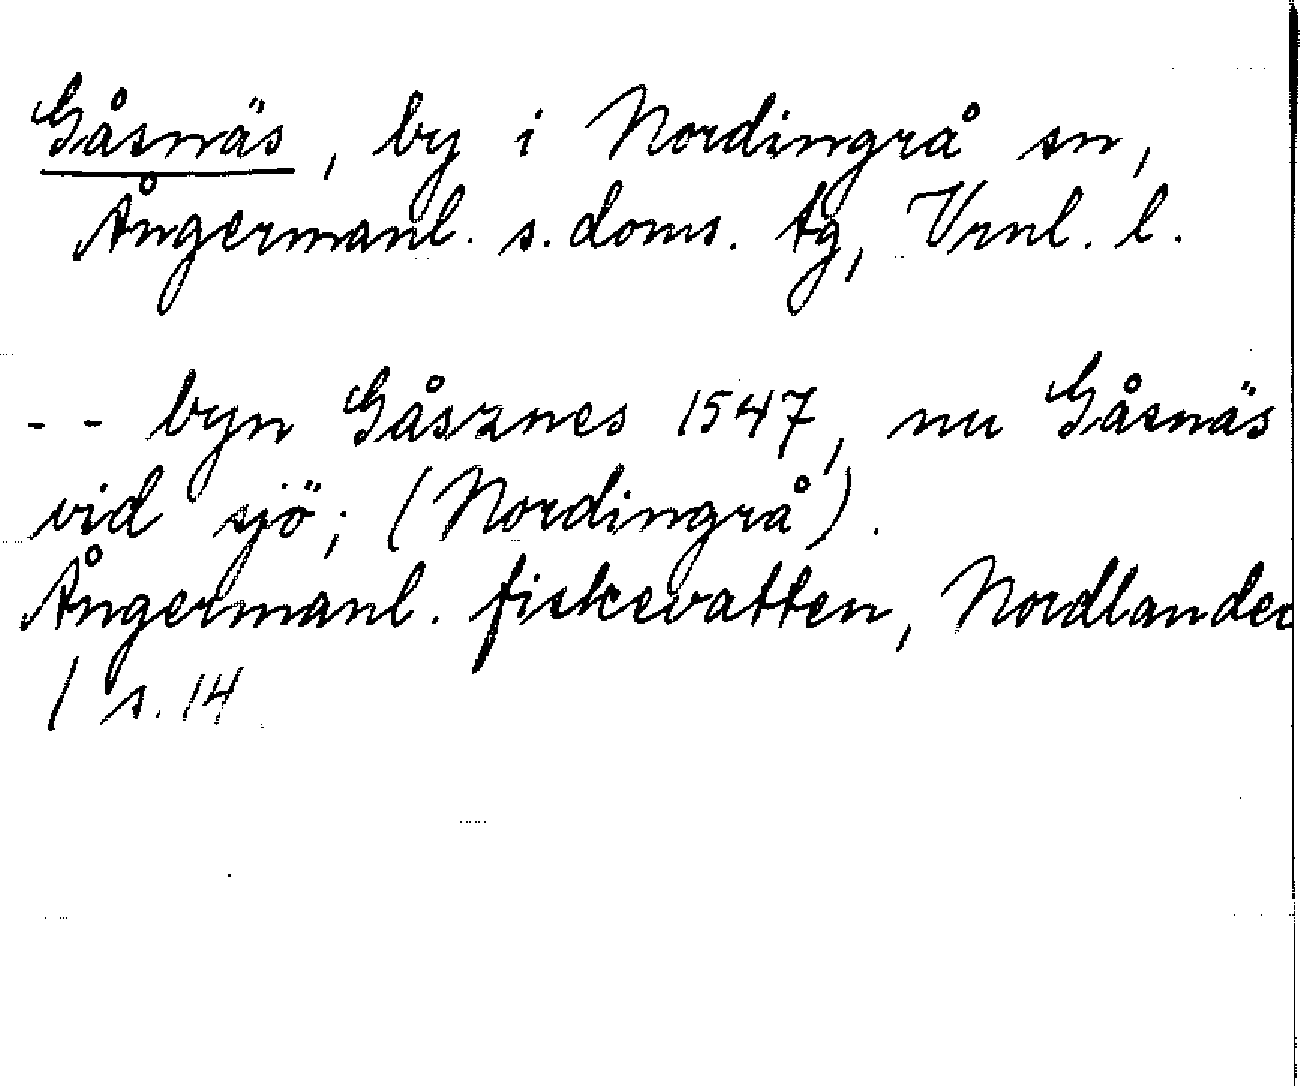 Gåsnäs, by i Nordingrå sn,
Ångermanl. s. doms. tg, Vrnl. l.
-- byn Gåsznes 1547, nu Gåsnäs
vid sjö; (Nordingrå).
Ångermanl. fiskevatten, Nordlander
/ s. 14